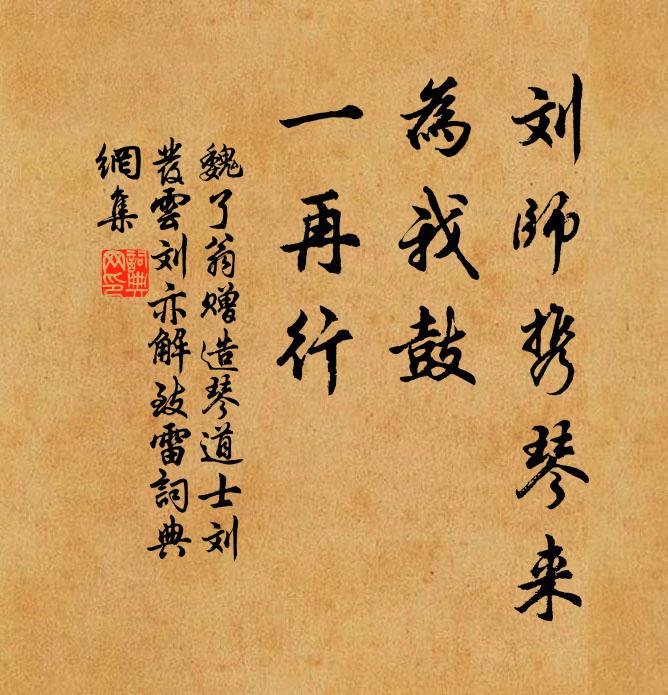 刘师携琴来
為我鼓
一再行
魏了翁赠造琴道士刘
發雲刘亦解致雷詞典
網集
詞典网印